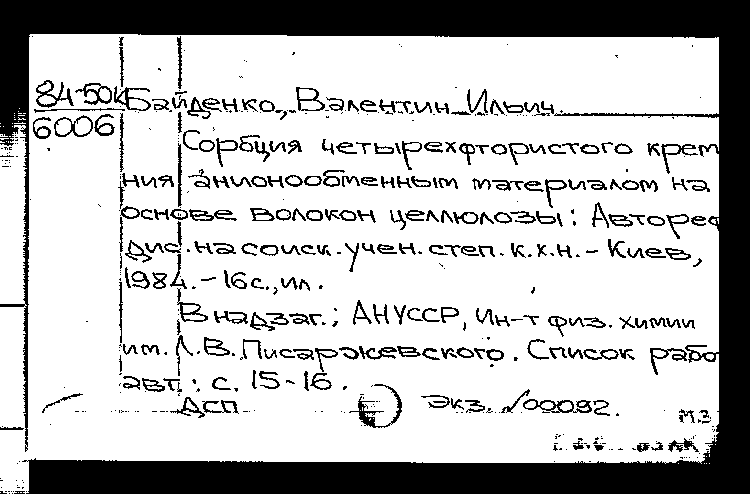 84-50к Байденко, Валентин Ильич.
6006
Сорбция четырехфтористого крем
ния анионообменным материалом на
основе волокон целлюлозы: Автореф
дис. на соиск. учен. степ. к.х.н. - Киев,
1984. - 16 с., ил.
В надзаг.; АНУССР, Ин-т физ. химии
им. Л.В. Писаржевского. Список рабо
авт.: с. 15-16.
ДСП экз. №00092.
М.З